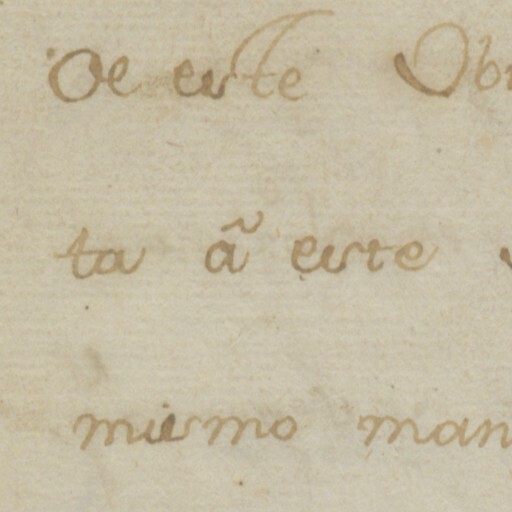 De este Ob
ta ã este
mismo man